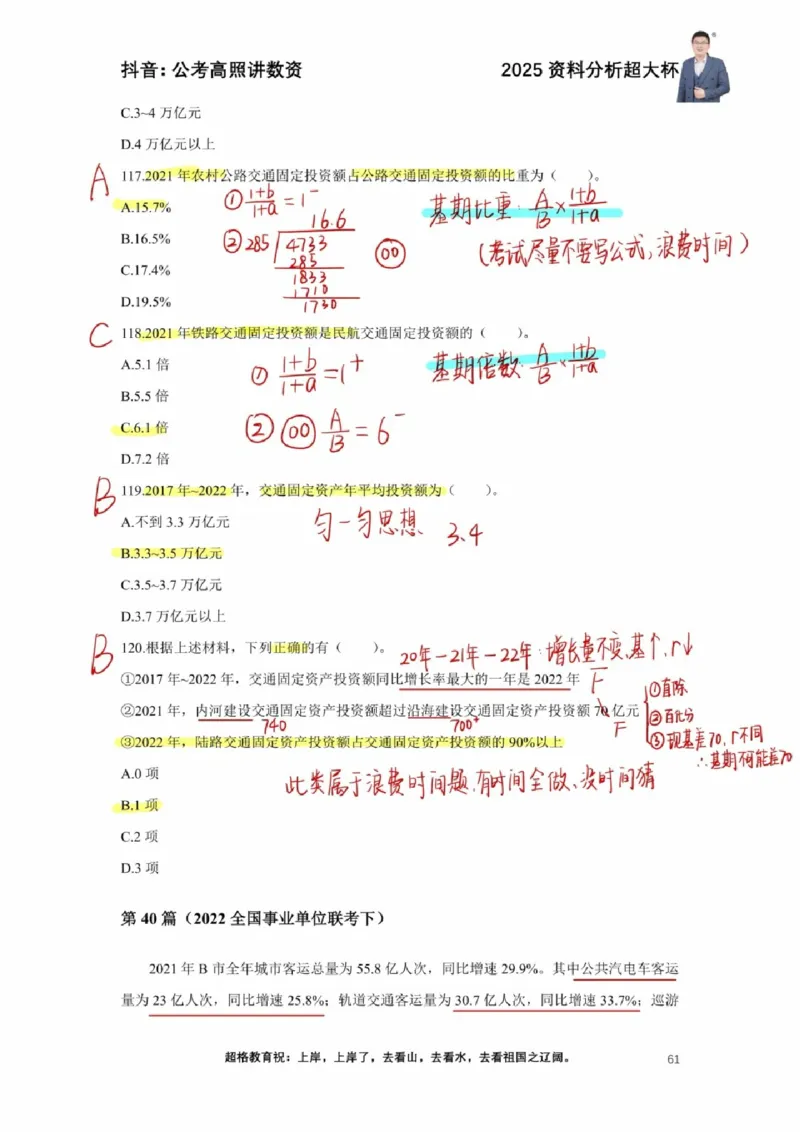 抖音：公考高照讲数资
2025 资料分析超大杯
C.3~4 万亿元
D.4 万亿元以上
A
117.2021 年农村公路交通固定投资额占公路交通固定投资额的比重为（ ）。
① 1+b/1+a = 1⁻
基期比重：A/B × 1+b/1+a
A.15.7%
16.6
B.16.5%
② 285 4733 00
（考试尽量不要写公式，浪费时间）
285
C.17.4%
1833
1710
D.19.5%
1730
C
118.2021 年铁路交通固定投资额是民航交通固定投资额的（ ）。
A.5.1 倍
① 1+b/1+a = 1⁺
基期倍数：A/B × 1+b/1+a
B.5.5 倍
C.6.1 倍
② 00 A/B = 6⁻
D.7.2 倍
B
119.2017 年~2022 年，交通固定资产年平均投资额为（ ）。
A.不到 3.3 万亿元
匀一匀思想 3.4
B.3.3~3.5 万亿元
C.3.5~3.7 万亿元
D.3.7 万亿元以上
B
120.根据上述材料，下列正确的有（ ）。
20年-21年-22年：增长量不变，基↑，r↓
①2017 年~2022 年，交通固定资产投资额同比增长率最大的一年是 2022 年
F
①直除
②2021 年，内河建设交通固定资产投资额超过沿海建设交通固定资产投资额 70 亿元
②百化分
740
700⁺
F
③现基差70，r不同
③2022 年，陆路交通固定资产投资额占交通固定资产投资额的 90%以上
∴基期不可能差70
A.0 项
此类属于浪费时间题，有时间全做、没时间猜
B.1 项
C.2 项
D.3 项
第 40 篇（2022 全国事业单位联考下）
2021 年 B 市全年城市客运总量为 55.8 亿人次，同比增速 29.9%。其中公共汽电车客运
量为 23 亿人次，同比增速 25.8%；轨道交通客运量为 30.7 亿人次，同比增速 33.7%；巡游
超格教育祝：上岸，上岸了，去看山，去看水，去看祖国之辽阔。
61